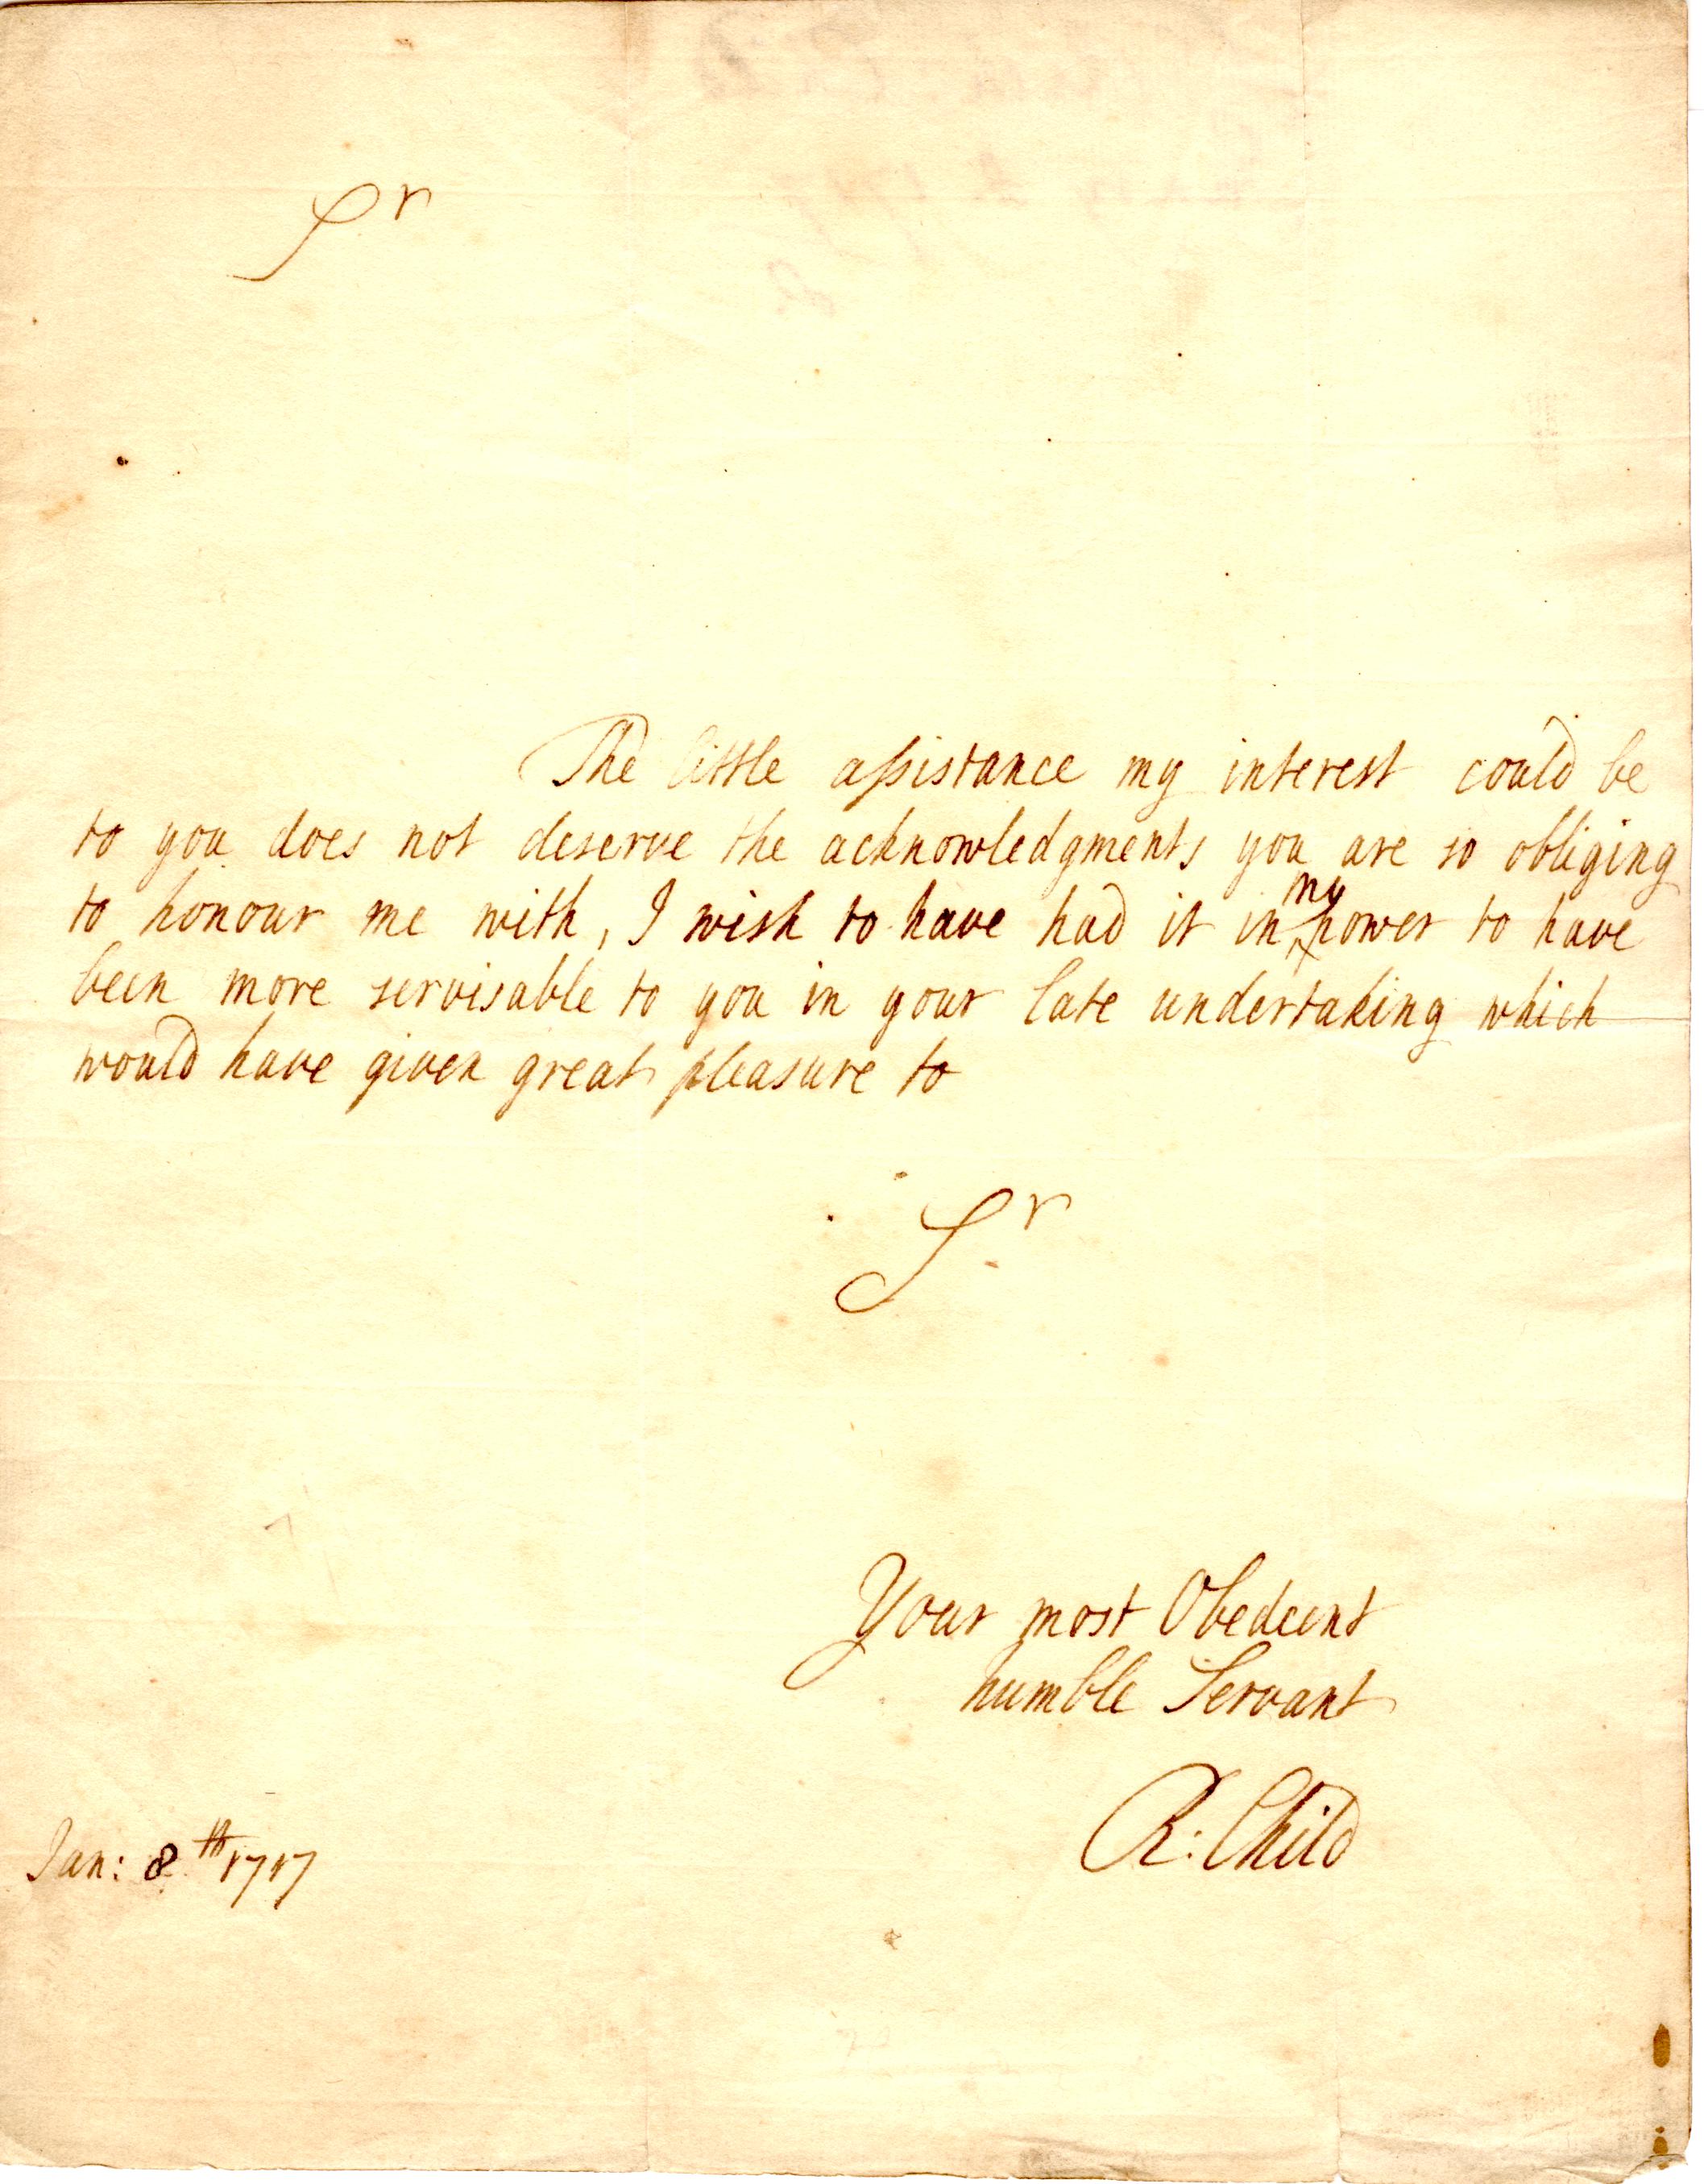 Sr
The little assistance my interest could be
to you does not deserve the acknowledgments you are so obliging
to honour me with, I wish to have had it in my power to have
been more servisable to you in your late undertaking which
would have given great pleasure to
Sr
Your most Obedient
humble Servant
R: Child
Jan: 8th 1717